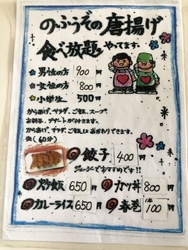 のふうぞの唐揚げ
食べ放題 やってます。
男性の方 900円
女性の方 800円
小学生 500円
からあげ、サラダ、ごはん、スープ、
お漬物、デザートが付きます。
からあげ、サラダ、ごはんはおかわりできます。
(60分)
餃子 400円
ジューシーでおすすめです!!
チャーハン 650円
カツ丼 800円
カレーライス 650円
春巻 100円